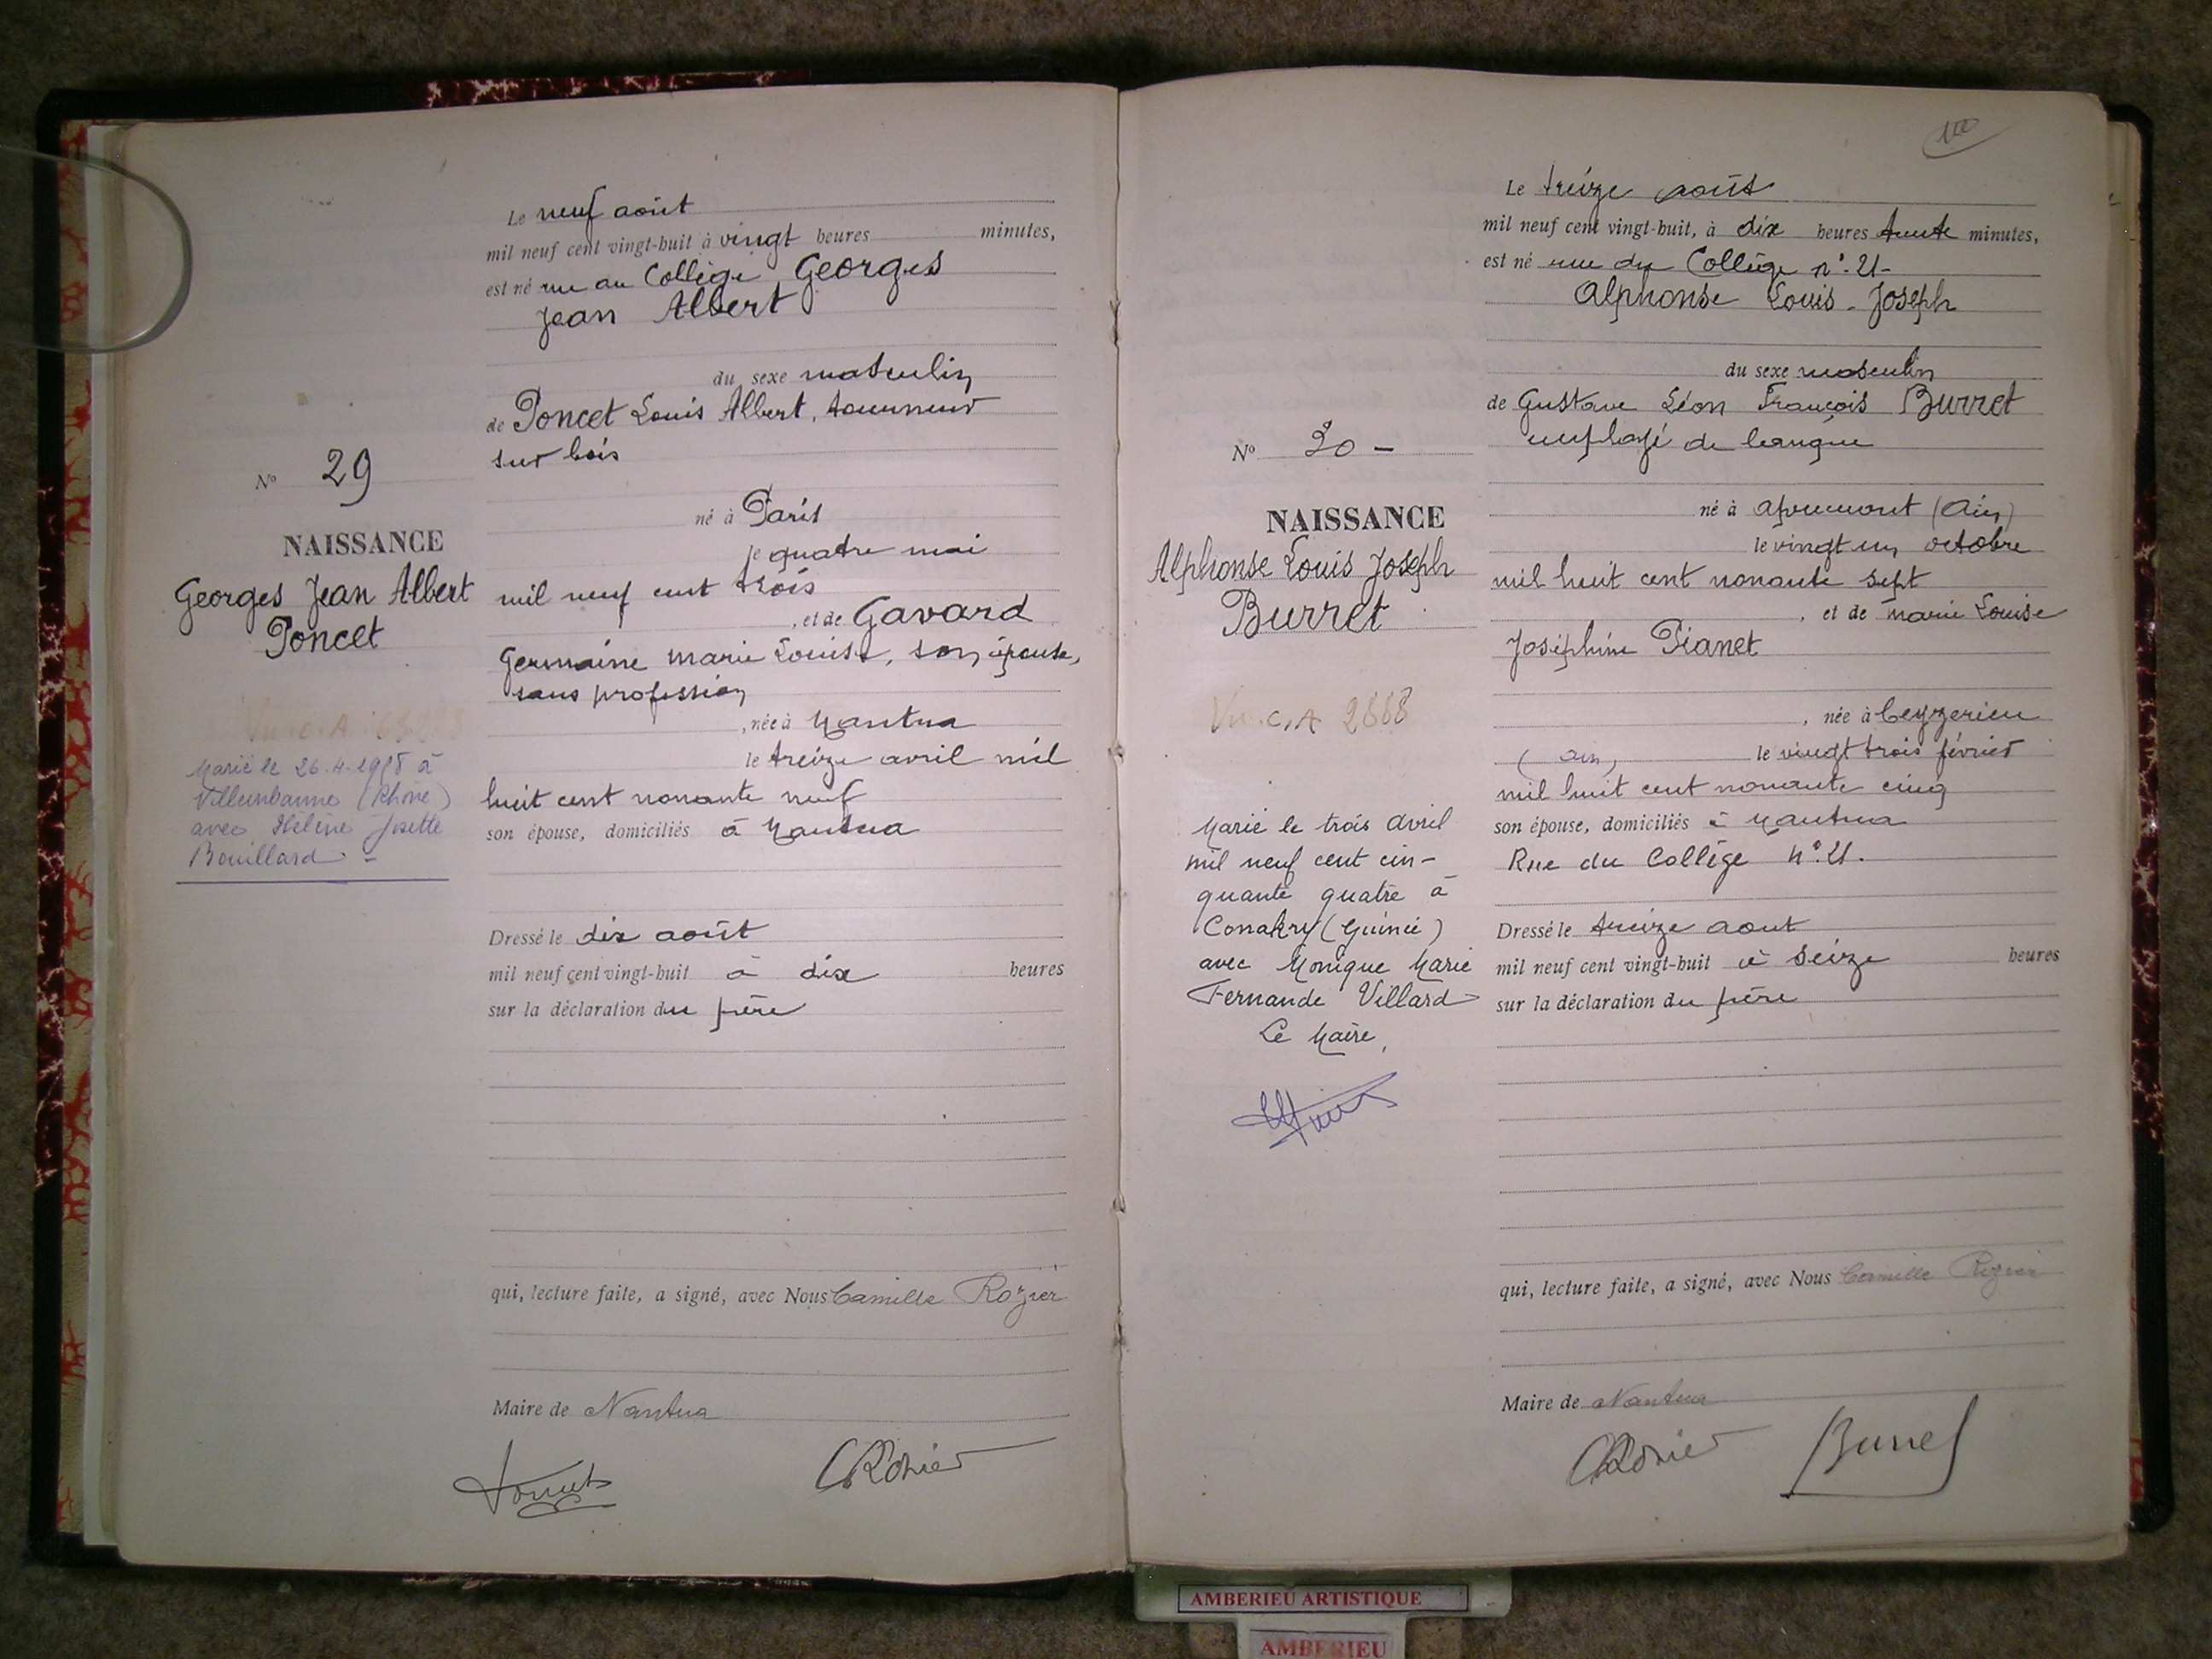 Le neuf août
mil neuf cent vingt-huit à vingt heures minutes,
est né rue du Collège Georges
Jean Albert
du sexe masculin
de Poncet Louis Albert, tourneur
sur bois
né à Paris
le quatre mai
mil neuf cent trois
, et de Gavard
Germaine Marie Louise, son épouse,
sans profession
, née à Nantua
le treize avril mil
huit cent nonante neuf
son épouse, domiciliés à Nantua
Dressé le dix août
mil neuf cent vingt-huit à dix heures
sur la déclaration du père
qui, lecture faite, a signé, avec Nous Camille Rozier
Maire de Nantua
Poncet
CRozier
No 29
NAISSANCE
Georges Jean Albert
Poncet
Marié le 26.4.1958 à
Villeurbanne (Rhône)
avec Hélène Josette
Bouillard -
Le treize août
mil neuf cent vingt-huit, à dix heures trente minutes,
est né rue du Collège n° 21-
Alphonse Louis-Joseph
du sexe masculin
de Gustave Léon François Burret
employé de banque
né à Apremont (Ain)
le vingt un octobre
mil huit cent nonante sept
, et de Marie Louise
Joséphine Pianet
, née à Ceyzerieu
(Ain) le vingt trois février
mil huit cent nonante cinq
son épouse, domiciliés à Nantua
Rue du Collège N° 21.
Dressé le treize aout
mil neuf cent vingt-huit à seize heures
sur la déclaration du père
qui, lecture faite, a signé, avec Nous Camille Rozier
Maire de Nantua
CRozier Burret
No 30 -
NAISSANCE
Alphonse Louis Joseph
Burret
Vu C.A 2888
Marié le trois Avril
mil neuf cent cin-
quante quatre à
Conakry (Guinée)
avec Monique Marie
Fernande Villard
Le Maire,
AMBERIEU ARTISTIQUE
AMBERIEU